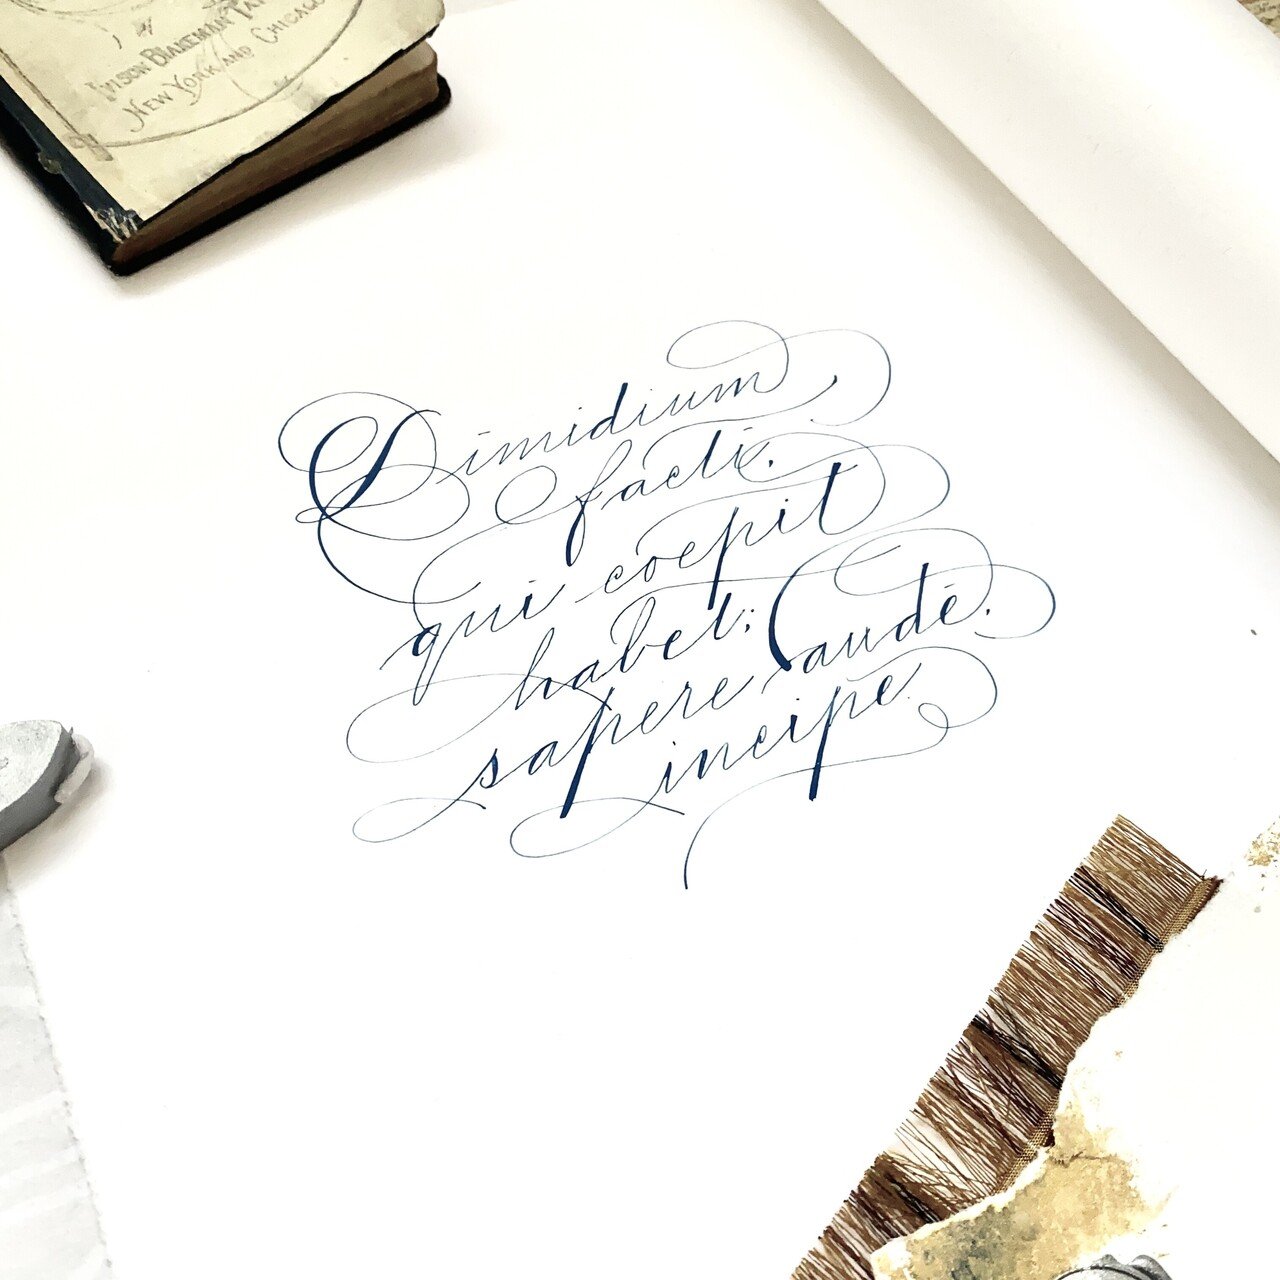 Ivison Blakeman Ta
New York and Chicago
Dimidium
facti,
qui coepit
habet;
sapere aude,
incipe.